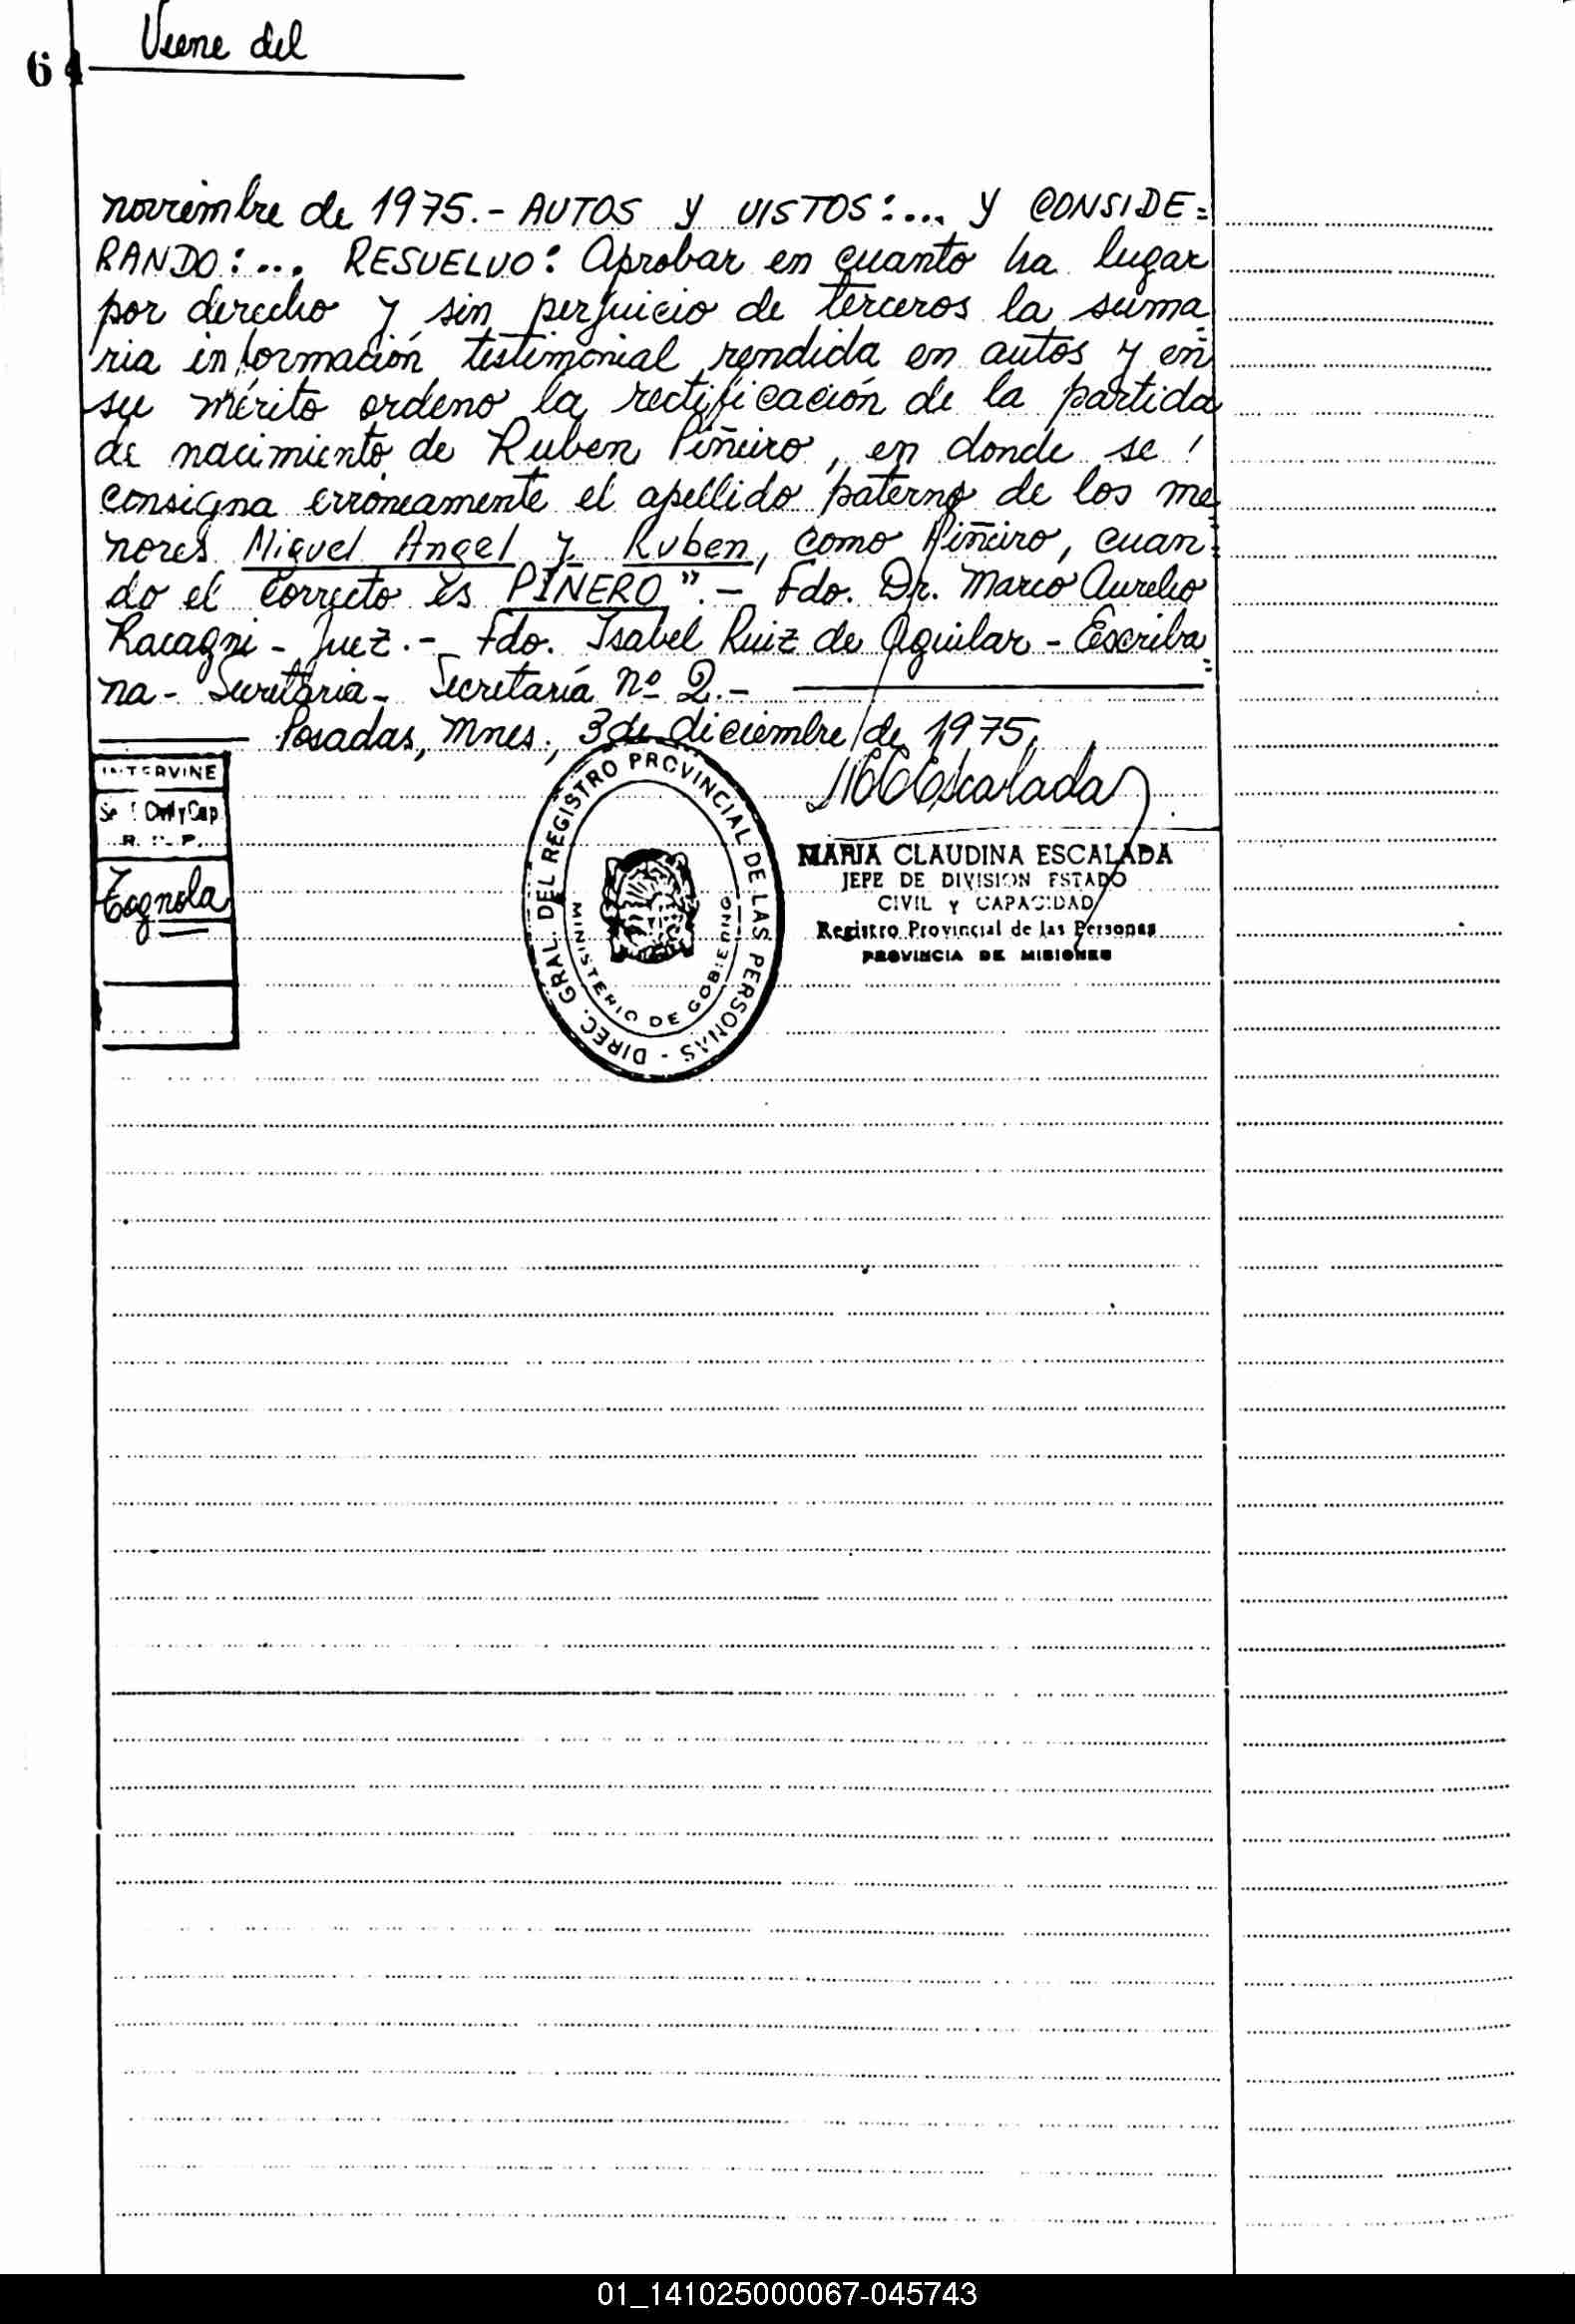 Viene del
64
noviembre de 1975.- AUTOS y VISTOS:... y CONSIDE=
RANDO:... RESUELVO: Aprobar en cuanto ha lugar
por derecho y sin perjuicio de terceros la suma
ria información testimonial rendida en autos y en
su mérito ordeno la rectificación de la partida
de nacimiento de Ruben Piñeiro, en donde se
consigna erróneamente el apellido paterno de los me
nores Miguel Angel y Ruben, como Piñeiro, cuan=
do el correcto es PIÑERO".- Fdo. Dr. Marco Aurelio
Racagni - Juez.- Fdo. Isabel Ruiz de Aguilar - Escriba=
na - Secretaria - Secretaría nº 2.-
Posadas, Mnes., 3 de diciembre de 1975.
INTERVINE
Civil y Cap
R. P.
Tognola
DIREC. GRAL. DEL REGISTRO PROVINCIAL DE LAS PERSONAS -
MINISTERIO DE GOBIERNO
Escalada
MARIA CLAUDINA ESCALADA
JEFE DE DIVISION ESTADO
CIVIL Y CAPACIDAD
Registro Provincial de las Personas
PROVINCIA DE MISIONES
01_141025000067-045743